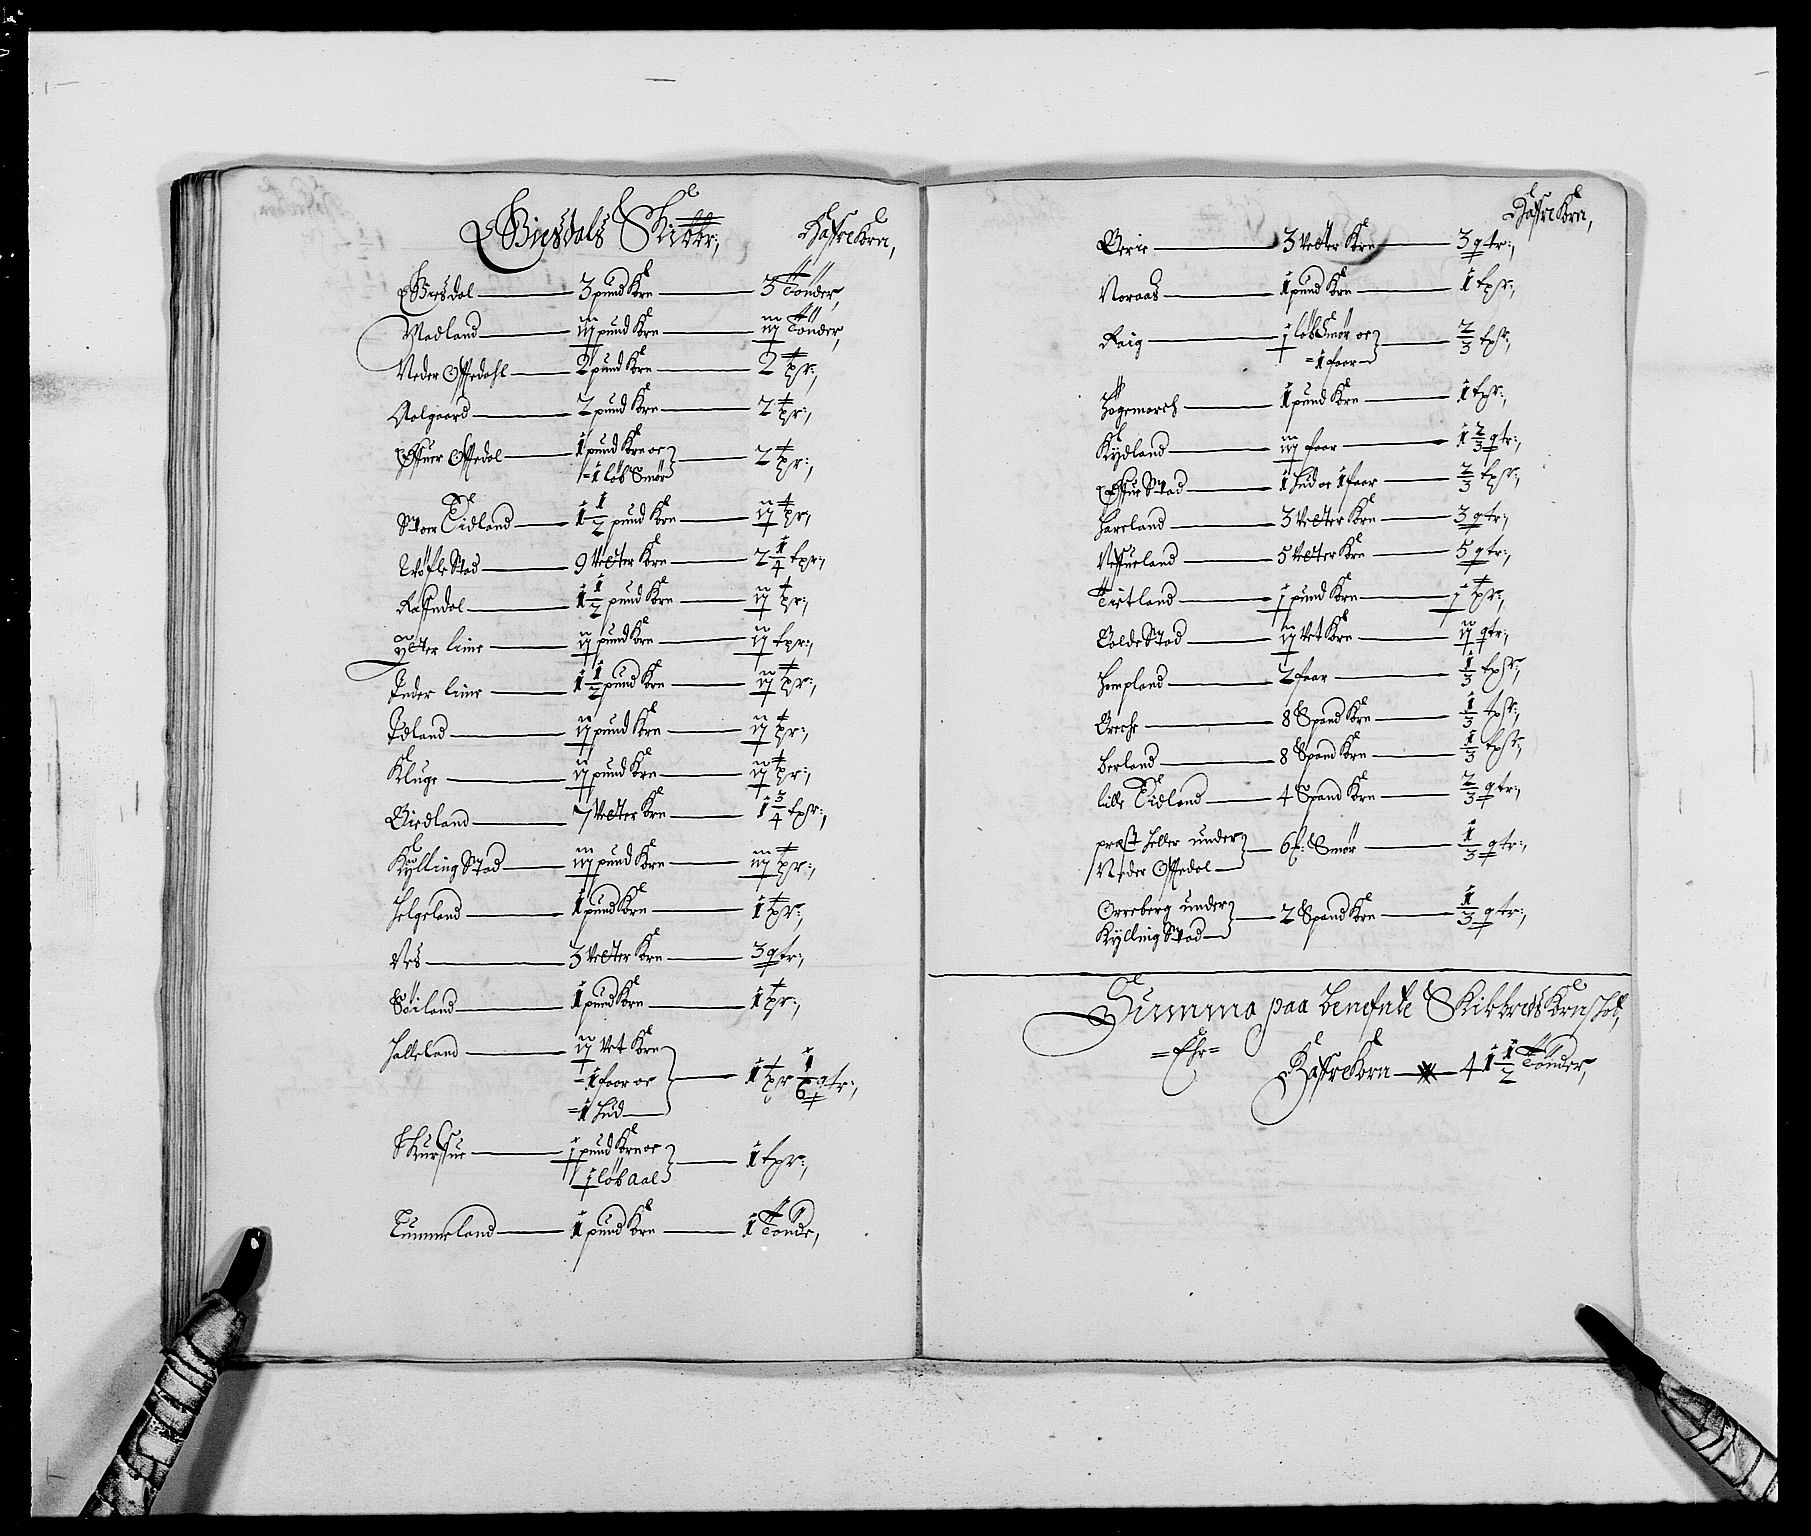 Giesdals Skibbr; Haffrekorn,
Giesdal 3 pund Korn 3 Tönder,
Madland iij pund Korn iij Tönder,
Neder Offedahl 2 pund Korn 2 tpr:,
Aalgaard 2 pund Korn 2 tpr:,
Øffuer Offedal 1 pund Korn oc
= 1 löb Smör 2 tpr:,
Stoer Eidland 1 1/2 pund Korn ij tpr:,
Wölstad 9 Vetter Korn 2 1/4 tpr:,
Raffndal 1 1/2 pund Korn ij tpr:,
ytter lime ij pund Korn ij tpr:,
Inder lime 1 1/2 pund Korn ij tpr:,
Idland ij pund Korn ij tpr:,
Kluge ij pund Korn ij tpr:,
Giedland 7 Vetter Korn 1 3/4 tpr:,
Kyllingstad iij pund Korn iij tpr:,
Helgeland 1 pund Korn 1 tpr:,
Nes 3 Vetter Korn 3 qtr:,
Söiland 1 pund Korn 1 tpr:,
Halleland ij Vet Korn
= 1 faar oc
= 1 Hud 1 tpr 1/6 qtr:,
Skurffue 1 pund Korn oc
1 löb aal 1 tpr:,
Tummeland 1 pund Korn 1 Tönde,
Haffrekorn,
3 Vetter Korn 3 qtr:,
Noraas 1 pund Korn 1 tpr:,
Raig 1 löb Smör oc
= 1 faar 2/3 tpr:,
Hogemarch 1 pund Korn 1 tpr:,
Kydland iij faar 1 2/3 qtr:,
Øffuestad 1 Hud oc 1 faar 2/3 tpr:,
Hareland 3 Vetter Korn 3 qtr:,
Veffueland 5 Vetter Korn 5 qtr:,
Tiötland 1 pund Korn 1 tpr:,
Oldestad ij Vet Korn ij qtr:,
Hompland 2 faar 1/3 tpr:,
8 Spand Korn 1/3 tpr:,
Berland 8 Spand Korn 1/3 tpr:,
lille Eidland 4 Spand Korn 2/3 qtr:,
præst Heller under
Neder Offedal 6 Smör 1/3 qtr:,
Orreberg under
Kyllingstad 2 Spand Korn 1/3 qtr:,
Summa paa benefnte Skibreds Kornskat,
= Ehr =
Haffrekorn 41 1/2 Tönder,